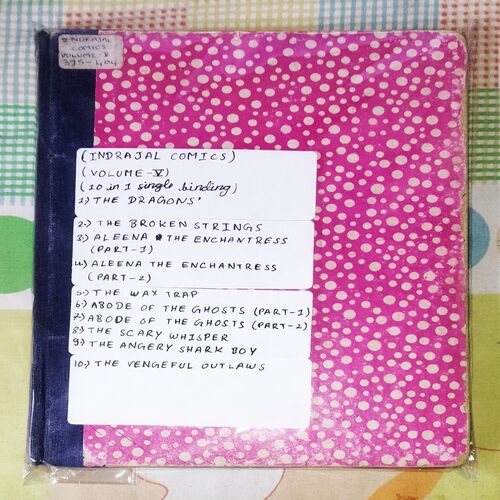 INDRAJAL
COMICS
VOLUME-V
395-404
(INDRAJAL COMICS)
(VOLUME-V)
(10 in 1 single binding)
1) THE DRAGONS'
2) THE BROKEN STRINGS
3) ALEENA THE ENCHANTRESS
(PART-1)
4) ALEENA THE ENCHANTRESS
(PART-2)
5) THE WAX TRAP
6) ABODE OF THE GHOSTS (PART-1)
7) ABODE OF THE GHOSTS (PART-2)
8) THE SCARY WHISPER
9) THE ANGERY SHARK BOY
10) THE VENGEFUL OUTLAWS